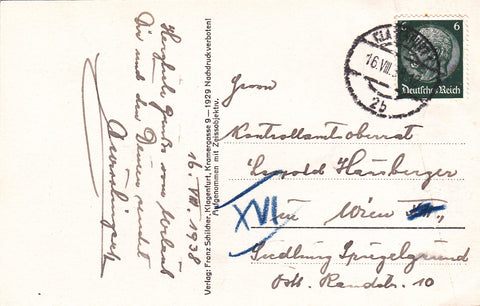 Herzliche Grüße vom Urlaub
Dir und den Deinen sendet
16. VIII. 1938
Verlag: Franz Schilcher, Klagenfurt, Kramergasse 9 – 1929 Nachdruck verboten!
Aufgenommen mit Zeissobjektiv.
6
Deutsches Reich
KLAGENFURT
16.VIII.3
2b
Herrn
Kontrollamtsoberrat
Leopold Hamberger
XVI in Wien
Siedlung Spiegelgrund
Öst. Randstr. 10